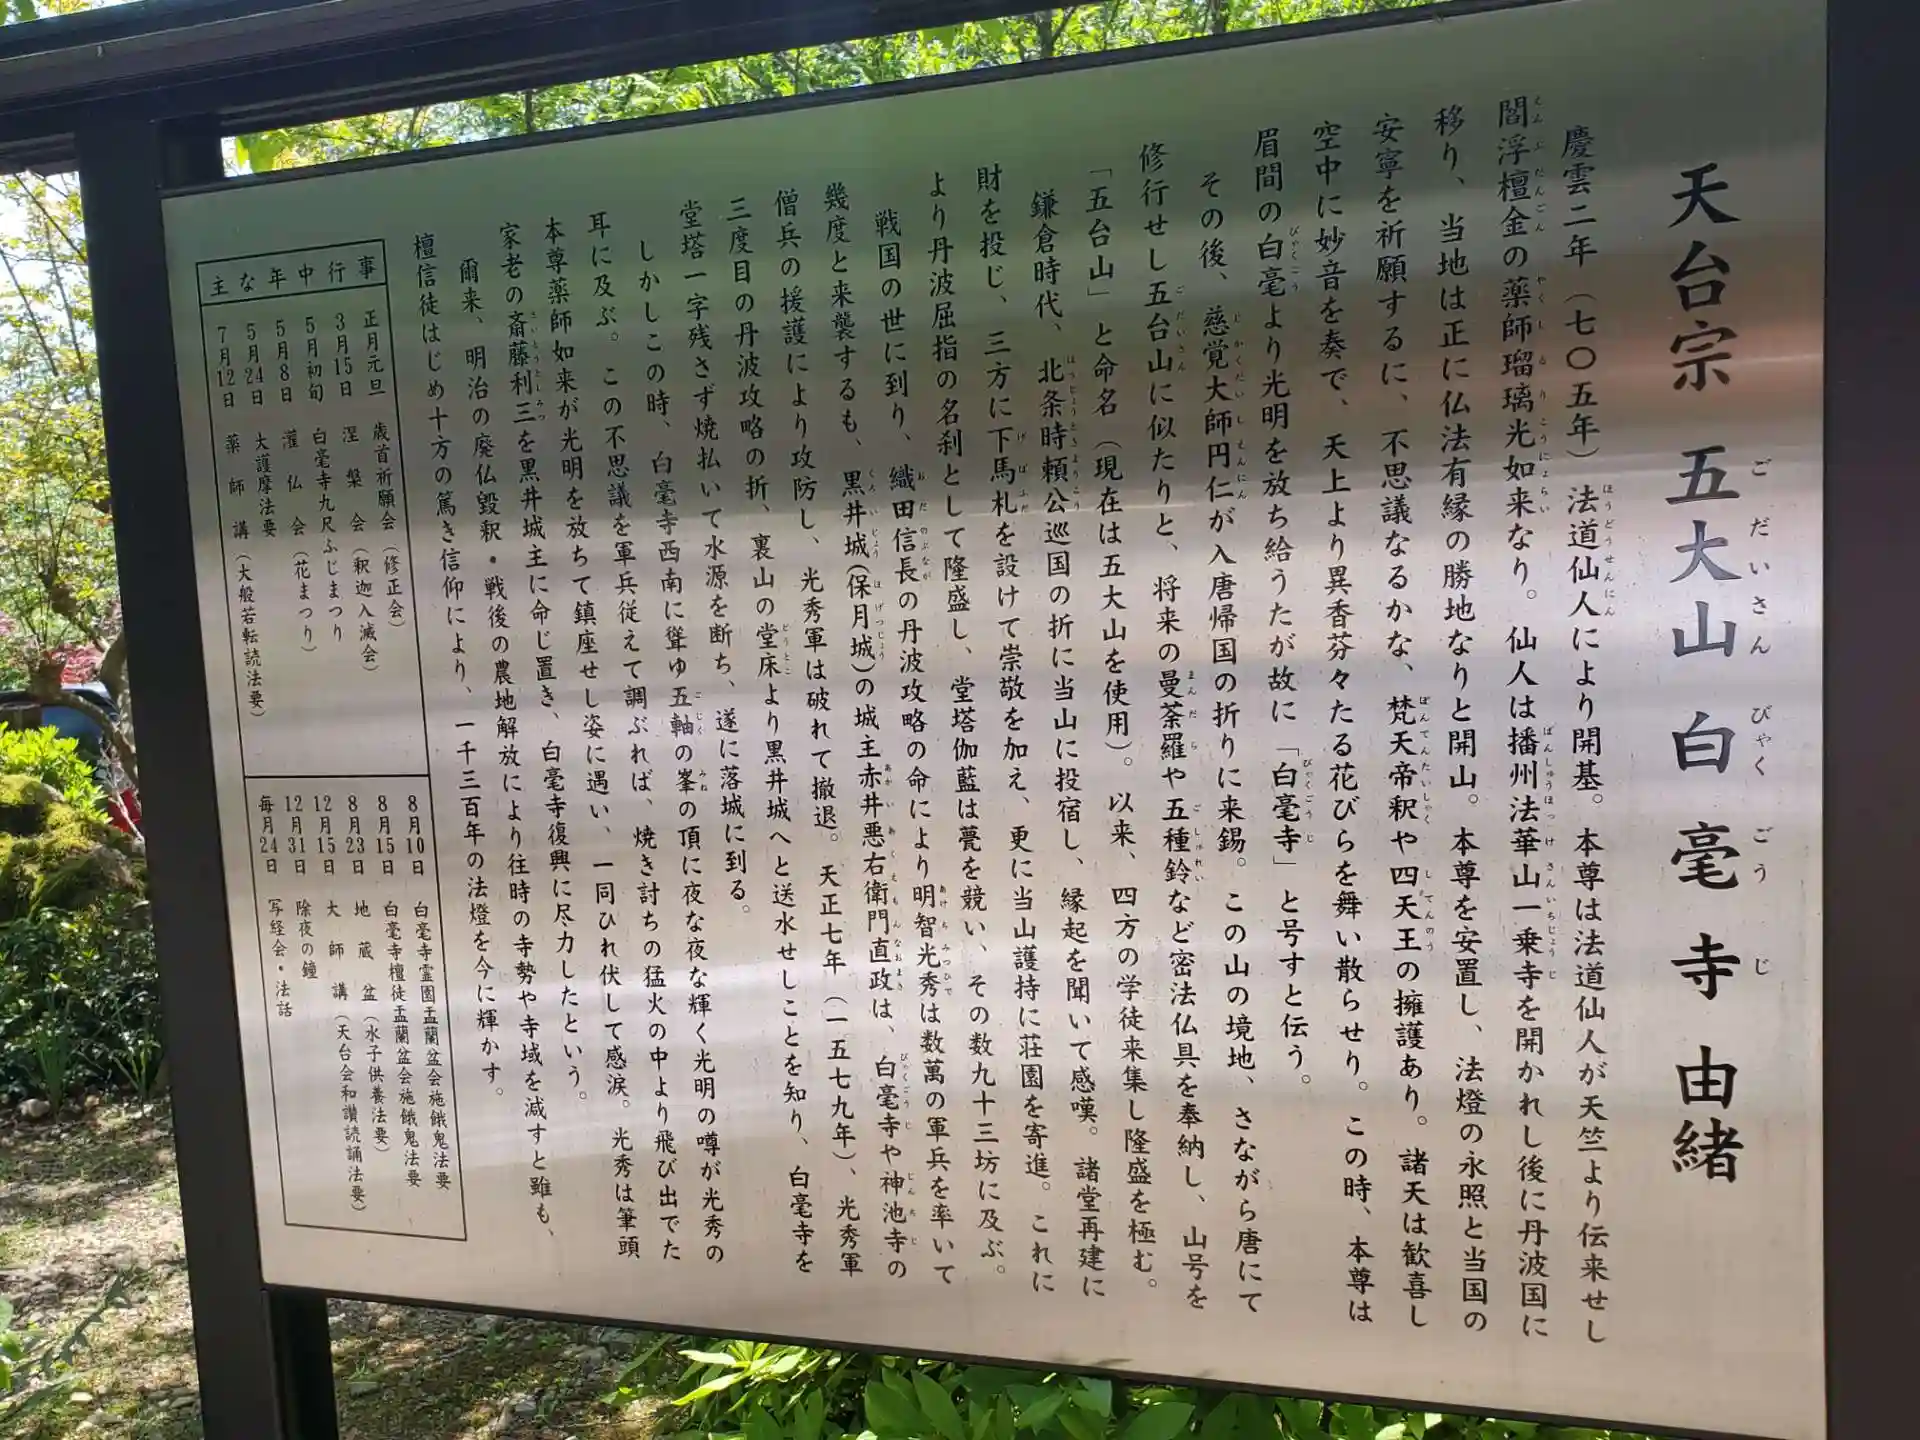 天台宗 五大山 白毫寺 由緒
慶雲二年（七〇五年）法道仙人により開基。本尊は法道仙人が天竺より伝来せし
閻浮檀金の薬師瑠璃光如来なり。仙人は播州法華山一乗寺を開かれし後に丹波国に
移り、当地は正に仏法有縁の勝地なりと開山。本尊を安置し、法燈の永照と当国の
安寧を祈願するに、不思議なるかな、梵天帝釈や四天王の擁護あり。諸天は歓喜し
空中に妙音を奏で、天上より異香芬々たる花びらを舞い散らせり。この時、本尊は
眉間の白毫より光明を放ち給うたが故に「白毫寺」と号すと伝う。
その後、慈覚大師円仁が入唐帰国の折りに来錫。この山の境地、さながら唐にて
修行せし五台山に似たりと、将来の曼荼羅や五種鈴など密法仏具を奉納し、山号を
「五台山」と命名（現在は五大山を使用）。以来、四方の学徒来集し隆盛を極む。
鎌倉時代、北条時頼公巡国の折に当山に投宿し、縁起を聞いて感嘆。諸堂再建に
財を投じ、三方に下馬札を設けて崇敬を加え、更に当山護持に荘園を寄進。これに
より丹波屈指の名刹として隆盛し、堂塔伽藍は甍を競い、その数九十三坊に及ぶ。
戦国の世に到り、織田信長の丹波攻略の命により明智光秀は数萬の軍兵を率いて
幾度と来襲するも、黒井城(保月城)の城主赤井悪右衛門直政は、白毫寺や神池寺の
僧兵の援護により攻防し、光秀軍は破れて撤退。天正七年（一五七九年）、光秀軍
三度目の丹波攻略の折、裏山の堂床より黒井城へと送水せしことを知り、白毫寺を
堂塔一字残さず焼払いて水源を断ち、遂に落城に到る。
しかしこの時、白毫寺西南に聳ゆ五軸の峯の頂に夜な夜な輝く光明の噂が光秀の
耳に及ぶ。この不思議を軍兵従えて調ぶれば、焼き討ちの猛火の中より飛び出でた
本尊薬師如来が光明を放ちて鎮座せし姿に遇い、一同ひれ伏して感涙。光秀は筆頭
家老の斎藤利三を黒井城主に命じ置き、白毫寺復興に尽力したという。
爾来、明治の廃仏毀釈・戦後の農地解放により往時の寺勢や寺域を減ずと雖も、
檀信徒はじめ十方の篤き信仰により、一千三百年の法燈を今に輝かす。
主な年中行事
正月元旦 歳首祈願会（修正会）
3月15日 涅槃会（釈迦入滅会）
5月初旬 白毫寺九尺ふじまつり
5月8日 灌仏会（花まつり）
5月24日 大護摩法要
7月12日 薬師講（大般若転読法要）
8月10日 白毫寺霊園盂蘭盆会施餓鬼法要
8月15日 白毫寺檀徒盂蘭盆会施餓鬼法要
8月23日 地蔵盆（水子供養法要）
12月15日 大師講（天台会和讃読誦法要）
12月31日 除夜の鐘
毎月24日 写経会・法話